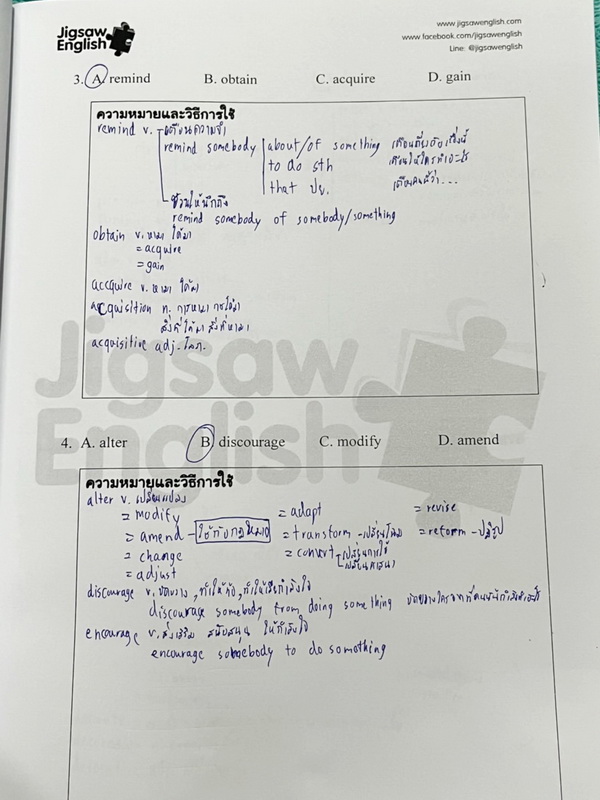 Jigsaw English
www.jigsawenglish.com
www.facebook.com/jigsawenglish
Line: @jigsawenglish
3. A. remind B. obtain C. acquire D. gain
ความหมายและวิธีการใช้
remind v. เตือนความจำ
remind somebody about/of something เตือนเกี่ยวกับเรื่องนี้
to do sth เตือนให้ใครทำอะไร
that ปย. เตือนคนนี้ว่า...
ชวนให้นึกถึง
remind somebody of somebody/something
obtain v. หามา ได้มา
= acquire
= gain
accquire v. หามา ได้มา
acquisition n. การหามา การได้มา
สิ่งที่ได้มา สิ่งที่หามา
acquisitive adj. โลภ
Jigsaw English
4. A. alter B. discourage C. modify D. amend
ความหมายและวิธีการใช้
alter v. เปลี่ยนแปลง
= modify = adapt = revise
= amend - ใช้กับกฎหมาย = transform - เปลี่ยนโฉม = reform - ปฏิรูป
= change = convert - เปลี่ยนการใช้
= adjust เปลี่ยนศาสนา
discourage v. ขัดขวาง, ทำให้ท้อ, ทำให้เสียกำลังใจ
discourage somebody from doing something
encourage v. ส่งเสริม สนับสนุน ให้กำลังใจ
encourage somebody to do somothing